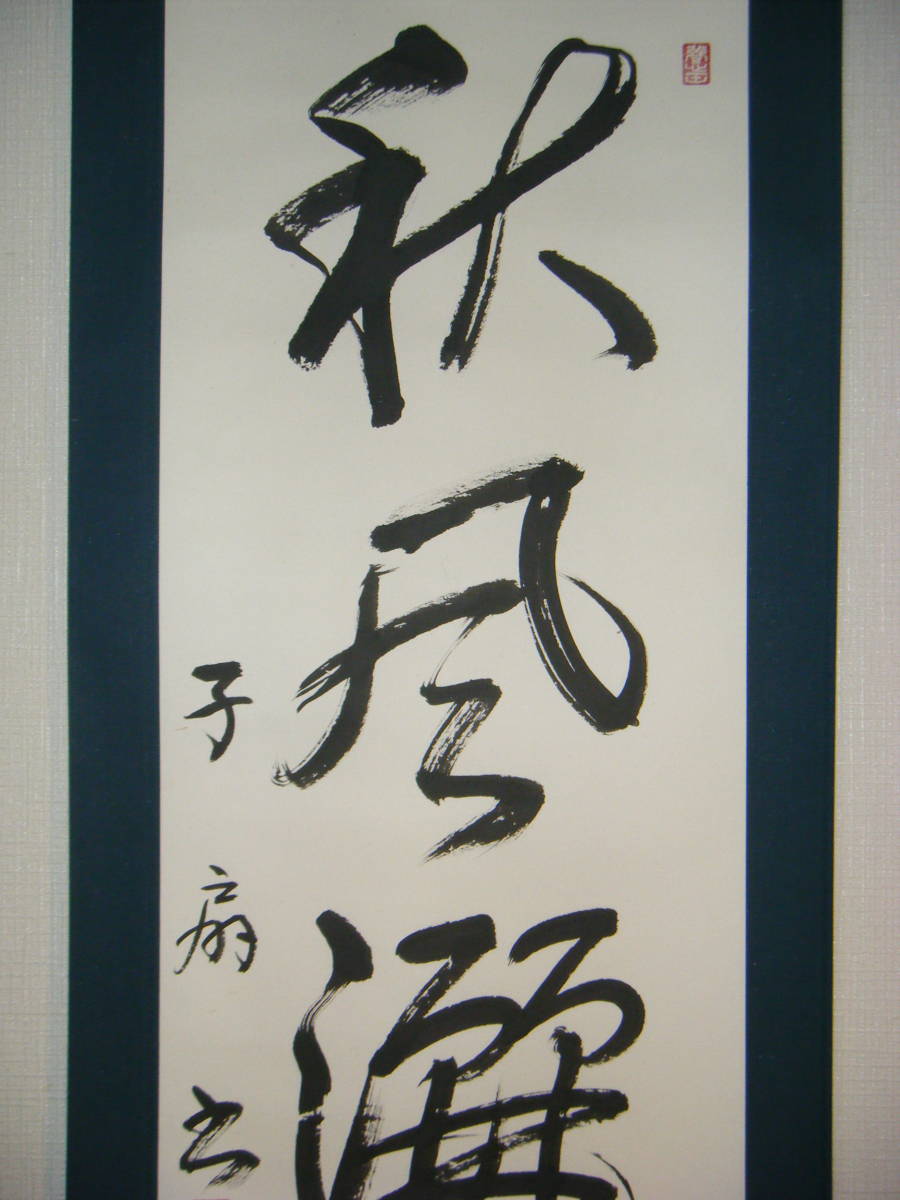 秋風灑
子扇書